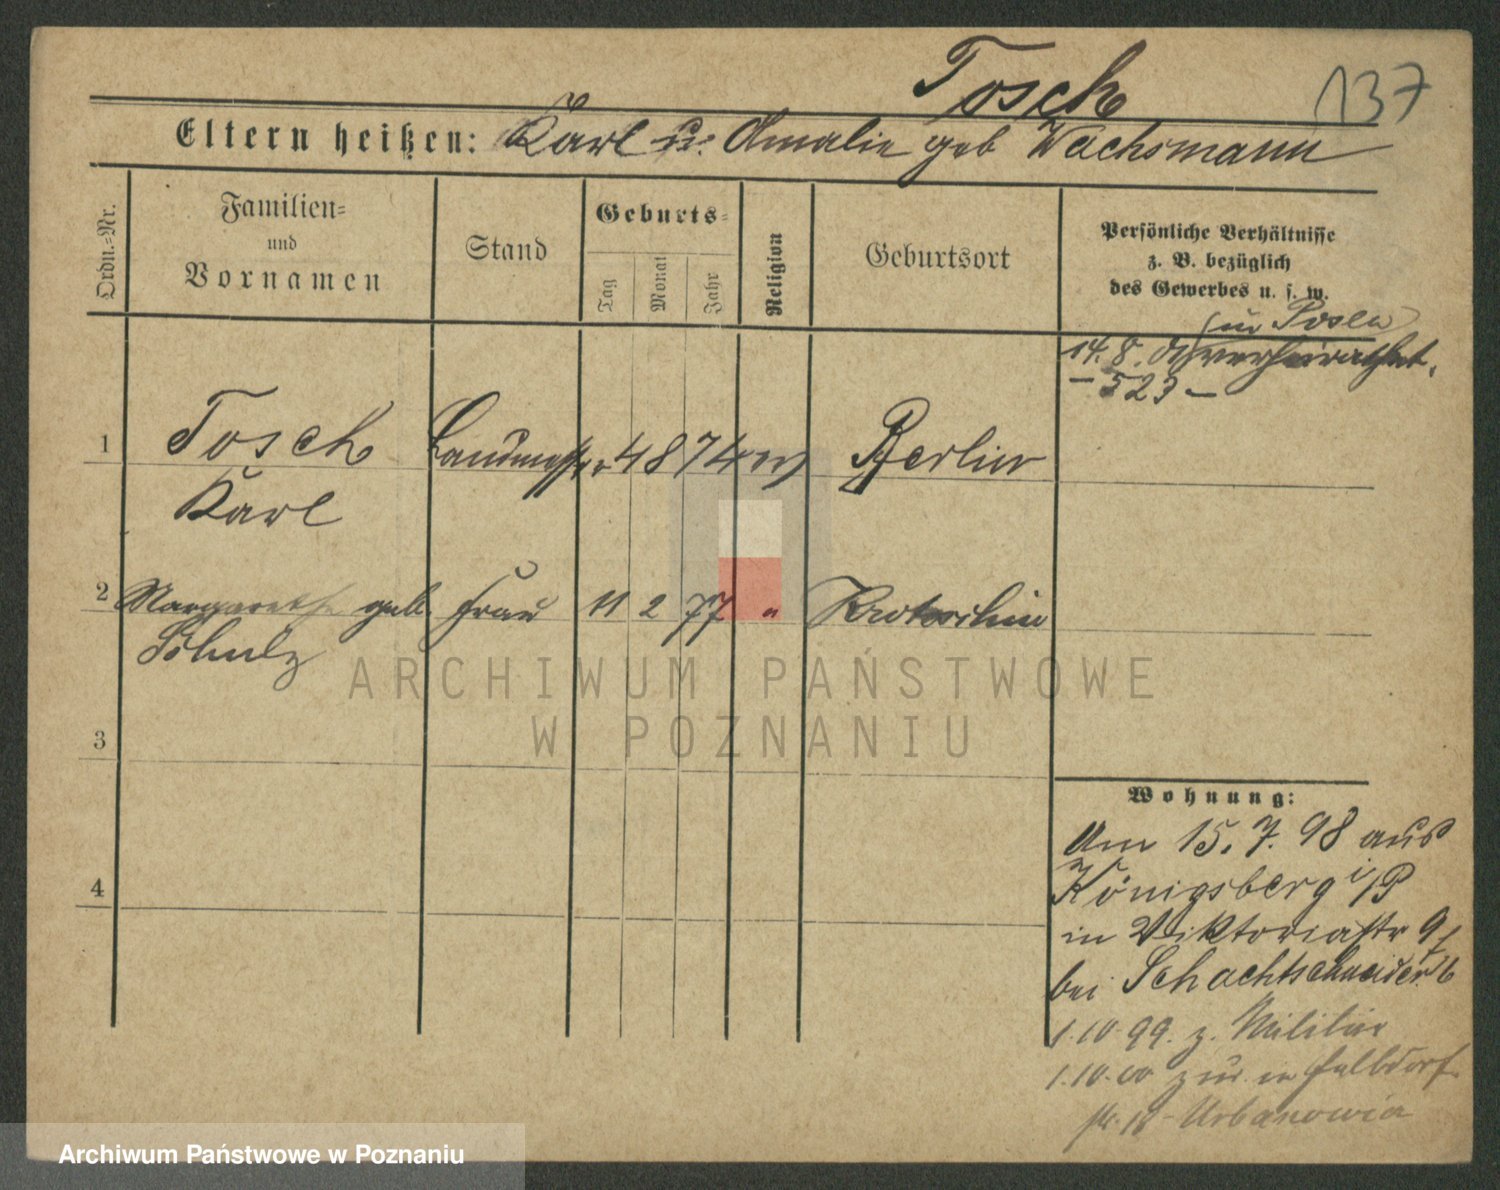 Tosch 137
Eltern heißen: Karl u. Amalie geb Wachsmann
Ordn.=Nr.
Familien=
und
Vornamen
Stand
Geburts=
Tag
Monat
Jahr
Religion
Geburtsort
Persönliche Verhältnisse
z. B. bezüglich
des Gewerbes u. s. w.
in Posen
14. 8. verheirathet.
– 523 –
1 Tosch Landmesser 4 8 74 Berlin
Karl
2 Margarethe geb. Frau 11 2 77 " Krotoschin
Schulz
3
4
ARCHIWUM PAŃSTWOWE
W POZNANIU
Wohnung:
Am 15. 7. 98 aus
Königsberg i/P
in Viktoriastr 9
bei Schachtschneider
1.10.99. z. Militär
1.10.00 zur in
18 Urbanowia
Archiwum Państwowe w Poznaniu